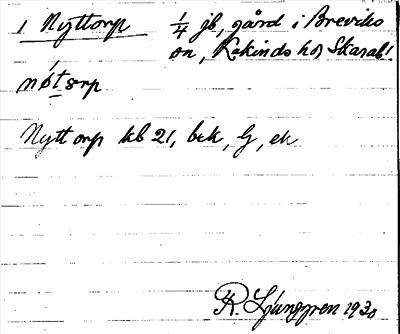 1 Nyttorp 1/4 jb, gård i Breviks
sn, Kakinds hd, Skarab.
nótərp
Nyttorp kb 21, bek, G, ek
R. Ljunggren 1930